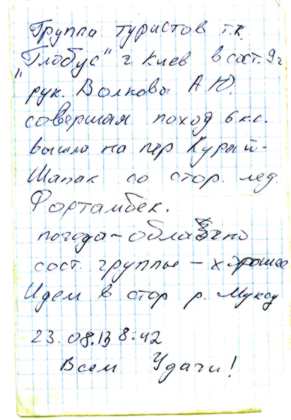 Группа туристов т.к.
"Глобус" г Киев в сост. 9 ч
рук. Волкова А.Ю.
совершая поход 6 к.с.
вышла на пер Курай-
Шапак со стор. лед.
Фортамбек.
погода – облачно
сост. группы – хорошее
Идем в стор р. Муксу
23.08.13 8:42
Всем Удачи!